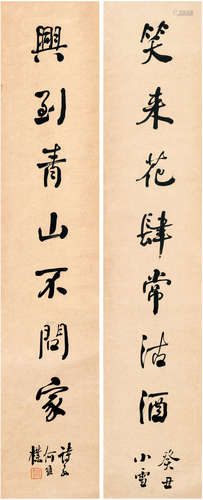 笑来花肆常沽酒
癸丑
小雪
興到青山不問家
何維樸